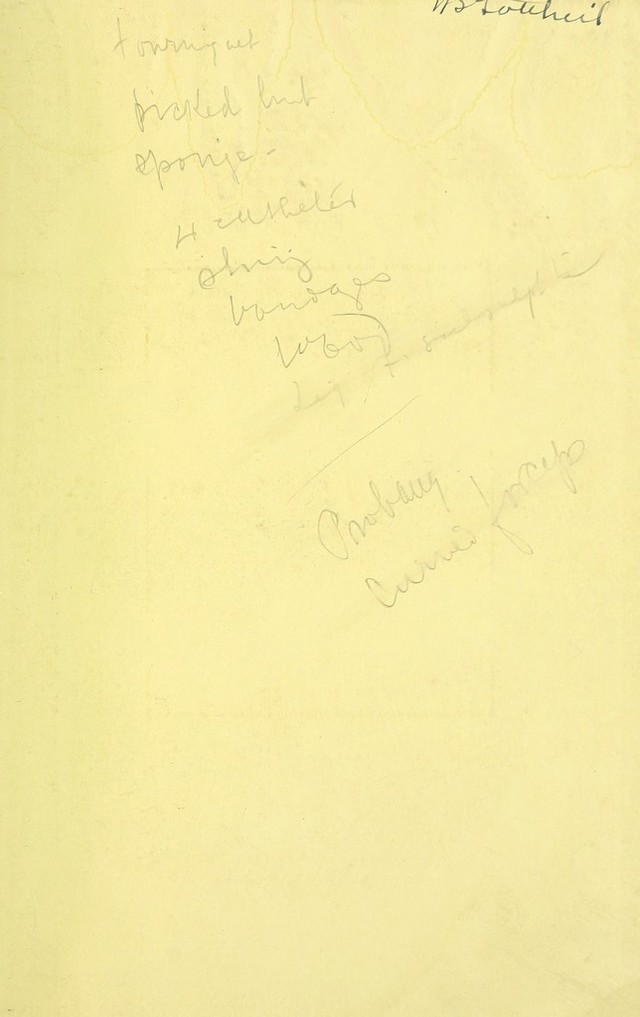 WS Gottheil
tourniquet
picked lint
sponge -
4 catheter
string
bandages
wood
Probang
curved forceps